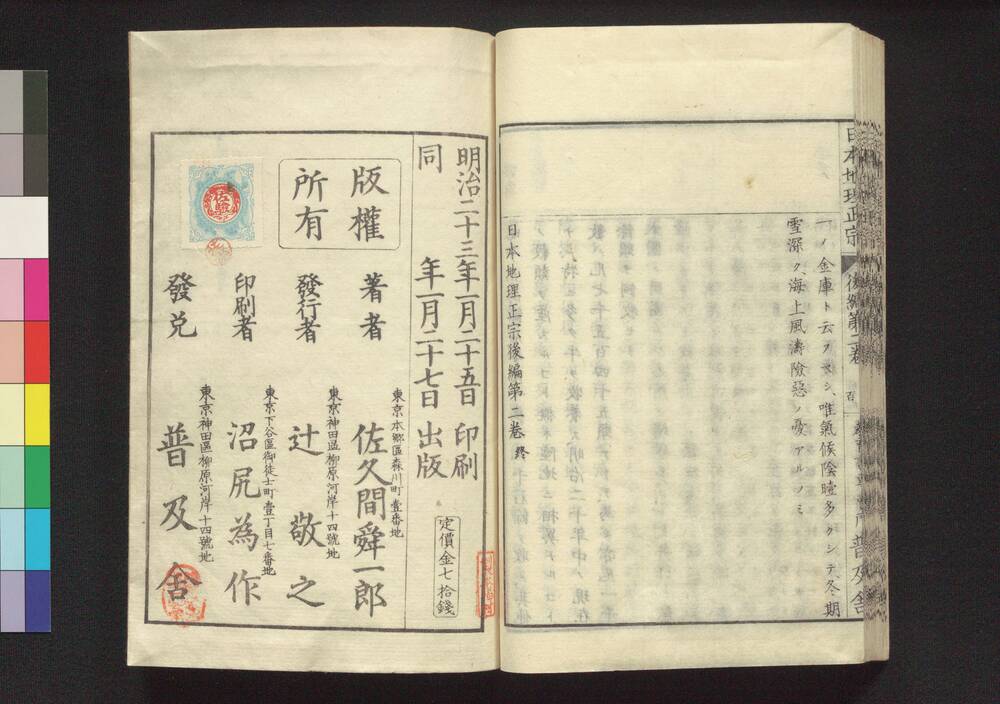 一ノ金庫ト云フベシ、唯氣候陰曀多クシテ、冬期
雪深ク、海上風濤險惡ノ憂アルノミ
日本地理正宗後編第二卷 終
日本地理正宗 後編第二卷
普及舍
明治二十三年一月二十五日 印刷
同 年一月二十七日 出版
定價金七拾錢
版權
所有
東京本鄉區森川町壹番地
著者 佐久間舜一郎
東京神田區柳原河岸十四號地
發行者 辻敬之
東京下谷區御徒士町壹丁目七番地
印刷者 沼尻為作
東京神田區柳原河岸十四號地
發兌 普及舍